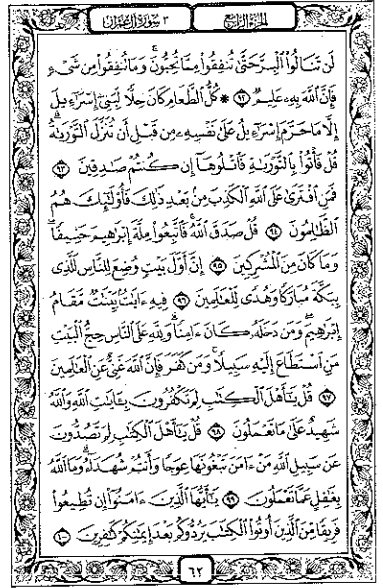 الجزء الرابع
٣ سورة آل عمران
لَن تَنَالُوا۟ ٱلْبِرَّ حَتَّىٰ تُنفِقُوا۟ مِمَّا تُحِبُّونَ ۚ وَمَا تُنفِقُوا۟ مِن شَىْءٍ
فَإِنَّ ٱللَّهَ بِهِۦ عَلِيمٌ ۝٩٢ ۞ كُلُّ ٱلطَّعَامِ كَانَ حِلًّا لِّبَنِىٓ إِسْرَٰٓءِيلَ
إِلَّا مَا حَرَّمَ إِسْرَٰٓءِيلُ عَلَىٰ نَفْسِهِۦ مِن قَبْلِ أَن تُنَزَّلَ ٱلتَّوْرَىٰةُ ۗ
قُلْ فَأْتُوا۟ بِٱلتَّوْرَىٰةِ فَٱتْلُوهَآ إِن كُنتُمْ صَٰدِقِينَ ۝٩٣
فَمَنِ ٱفْتَرَىٰ عَلَى ٱللَّهِ ٱلْكَذِبَ مِنۢ بَعْدِ ذَٰلِكَ فَأُو۟لَٰٓئِكَ هُمُ
ٱلظَّٰلِمُونَ ۝٩٤ قُلْ صَدَقَ ٱللَّهُ ۗ فَٱتَّبِعُوا۟ مِلَّةَ إِبْرَٰهِيمَ حَنِيفًا
وَمَا كَانَ مِنَ ٱلْمُشْرِكِينَ ۝٩٥ إِنَّ أَوَّلَ بَيْتٍ وُضِعَ لِلنَّاسِ لَلَّذِى
بِبَكَّةَ مُبَارَكًا وَهُدًى لِّلْعَٰلَمِينَ ۝٩٦ فِيهِ ءَايَٰتٌۢ بَيِّنَٰتٌ مَّقَامُ
إِبْرَٰهِيمَ ۖ وَمَن دَخَلَهُۥ كَانَ ءَامِنًا ۗ وَلِلَّهِ عَلَى ٱلنَّاسِ حِجُّ ٱلْبَيْتِ
مَنِ ٱسْتَطَاعَ إِلَيْهِ سَبِيلًا ۚ وَمَن كَفَرَ فَإِنَّ ٱللَّهَ غَنِىٌّ عَنِ ٱلْعَٰلَمِينَ
۝٩٧ قُلْ يَٰٓأَهْلَ ٱلْكِتَٰبِ لِمَ تَكْفُرُونَ بِـَٔايَٰتِ ٱللَّهِ وَٱللَّهُ
شَهِيدٌ عَلَىٰ مَا تَعْمَلُونَ ۝٩٨ قُلْ يَٰٓأَهْلَ ٱلْكِتَٰبِ لِمَ تَصُدُّونَ
عَن سَبِيلِ ٱللَّهِ مَنْ ءَامَنَ تَبْغُونَهَا عِوَجًا وَأَنتُمْ شُهَدَآءُ ۗ وَمَا ٱللَّهُ
بِغَٰفِلٍ عَمَّا تَعْمَلُونَ ۝٩٩ يَٰٓأَيُّهَا ٱلَّذِينَ ءَامَنُوٓا۟ إِن تُطِيعُوا۟
فَرِيقًا مِّنَ ٱلَّذِينَ أُوتُوا۟ ٱلْكِتَٰبَ يَرُدُّوكُم بَعْدَ إِيمَٰنِكُمْ كَٰفِرِينَ ۝١٠٠
٦٢